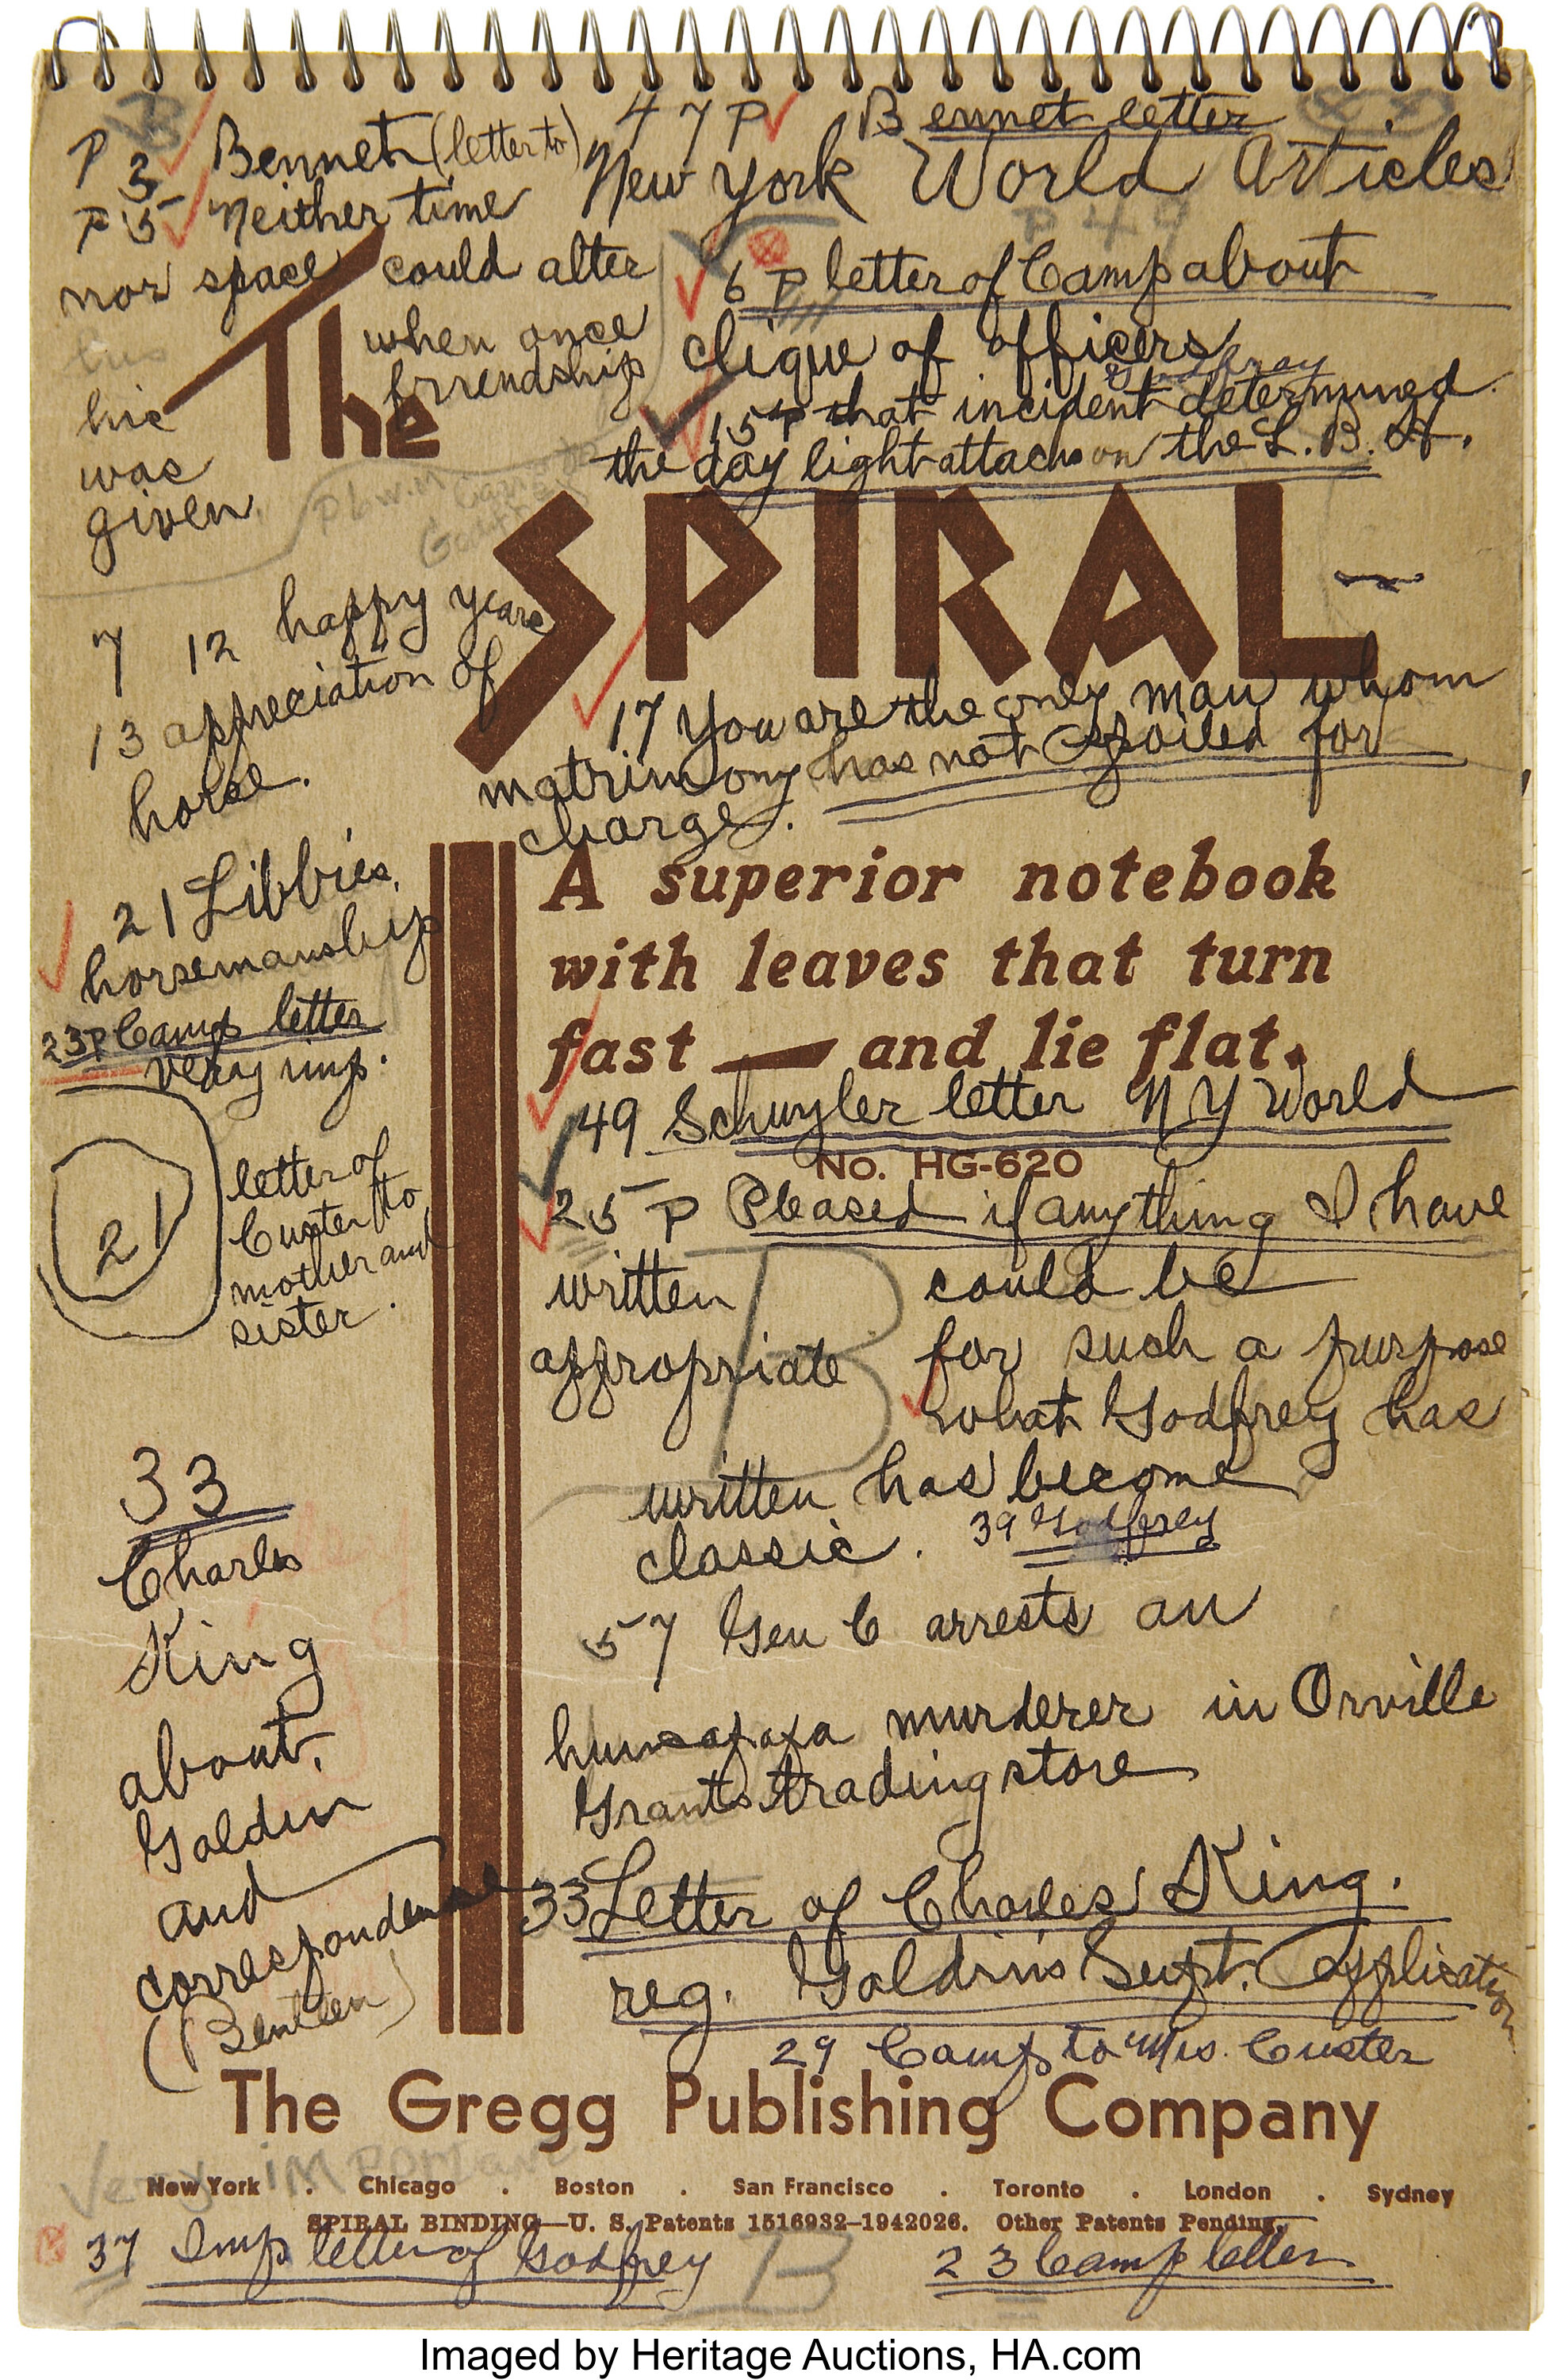 P 3 Bennet (letter to)
P 5 Neither time
nor space could alter
when once
friendship
his
was
given.
47 P Bennet letter
New York World Articles
P 49
6 P letter of Camp about
clique of officers
Godfrey
15 P that incident determined
the day light attack on the L. B. H.
The
SPIRAL
7 12 happy years
13 appreciation of
horse.
17 You are the only man whom
matrimony has not spoiled for
charge.
21 Libbie's
horsemanship
23 P Camp letter
very imp.
21
letter of
Custer to
mother and
sister.
A superior notebook
with leaves that turn
fast — and lie flat.
49 Schuyler letter N Y World
No. HG-620
25 P Pleased if anything I have
written could be
appropriate for such a purpose
what Godfrey has
written has become
classic. 39 Godfrey
57 Gen C arrests an
murderer in Orville
Grants trading store
33
Charles
King
about
Goldin
and
correspondence
(Benteen)
33 Letter of Charles King.
reg. Goldin's Supt. Application
29 Camp to Mrs. Custer
The Gregg Publishing Company
Very important
New York . Chicago . Boston . San Francisco . Toronto . London . Sydney
SPIRAL BINDING—U. S. Patents 1516932–1942026. Other Patents Pending.
37 Imp letter of Godfrey B
23 Camp letter
Imaged by Heritage Auctions, HA.com